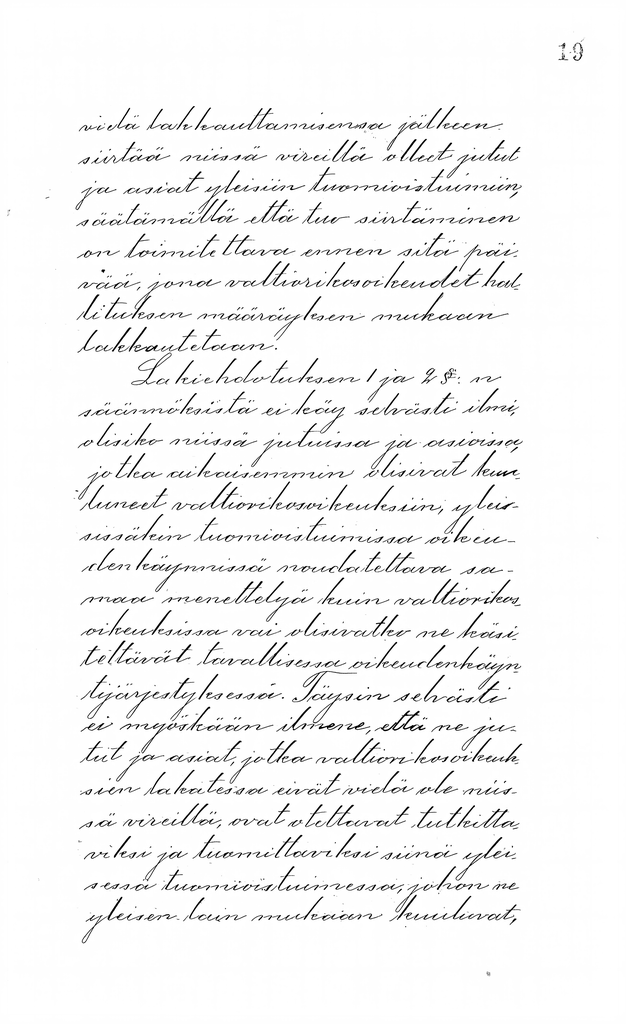 19
vielä lakkauttamisensa jälkeen
siirtää niissä vireillä olleet jutut
ja asiat yleisiin tuomioistuimiin,
säätämällä että tuo siirtäminen
on toimitettava ennen sitä päi-
vää, jona valtiorikosoikeudet hal-
lituksen määräyksen mukaan
lakkautetaan.
Lakiehdotuksen 1 ja 2 §:n
säännöksistä ei käy selvästi ilmi,
olisiko niissä jutuissa ja asioissa,
jotka aikaisemmin olisivat kuu-
luneet valtiorikosoikeuksiin, yleis-
sissäkin tuomioistuimissa oikeu-
denkäynnissä noudatettava sa-
maa menettelyä kuin valtiorikos-
oikeuksissa vai olisivatko ne käsi-
teltävät tavallisessa oikeudenkäyn-
tijärjestyksessä. Täysin selvästi
ei myöskään ilmene, että ne ju-
tut ja asiat, jotka valtiorikosoikeuk-
sien lakatessa eivät vielä ole niis-
sä vireillä, ovat otettavat tutkitta-
viksi ja tuomittaviksi siinä ylei-
sessä tuomioistuimessa, johon ne
yleisen lain mukaan kuuluvat,